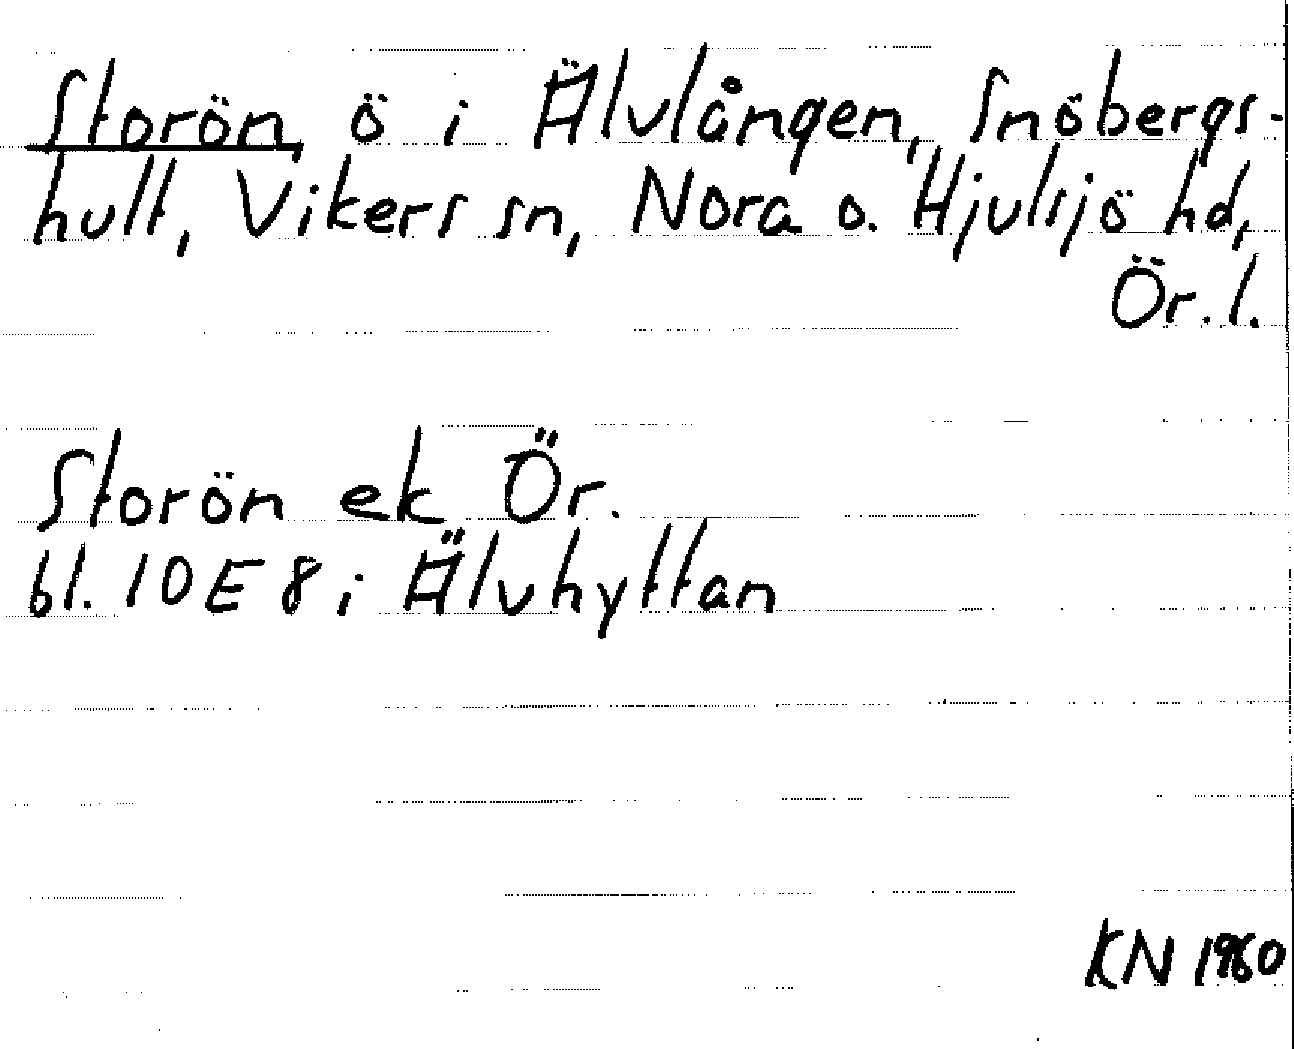 Storön, ö i Älvlången, Snöbergs-
hult, Vikers sn, Nora o. Hjulsjö hd,
Ör. l.
Storön ek Ör.
bl. 10E8i Älvhyttan
KN 1960